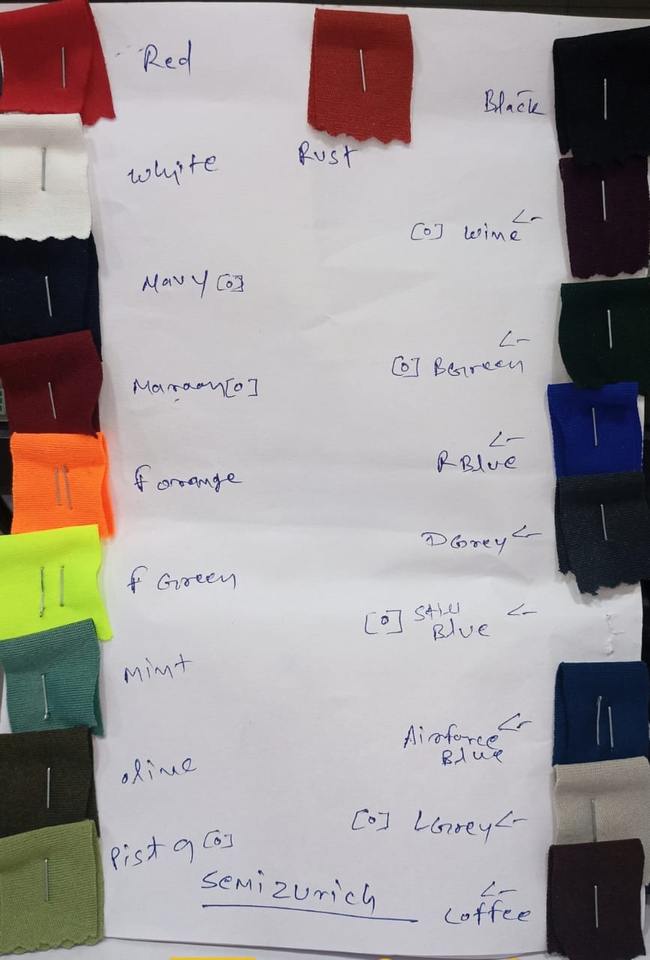 Red
Rust
Black
White
[o] Wine <-
Navy [o]
[o] BGreen <-
Maroon [o]
R Blue <-
F orange
D Grey <-
F Green
[o] <-
Blue
Mint
Airforce <-
Blue
olive
[o] L Grey <-
Pista [o]
SEMI ZURICH
Coffee <-